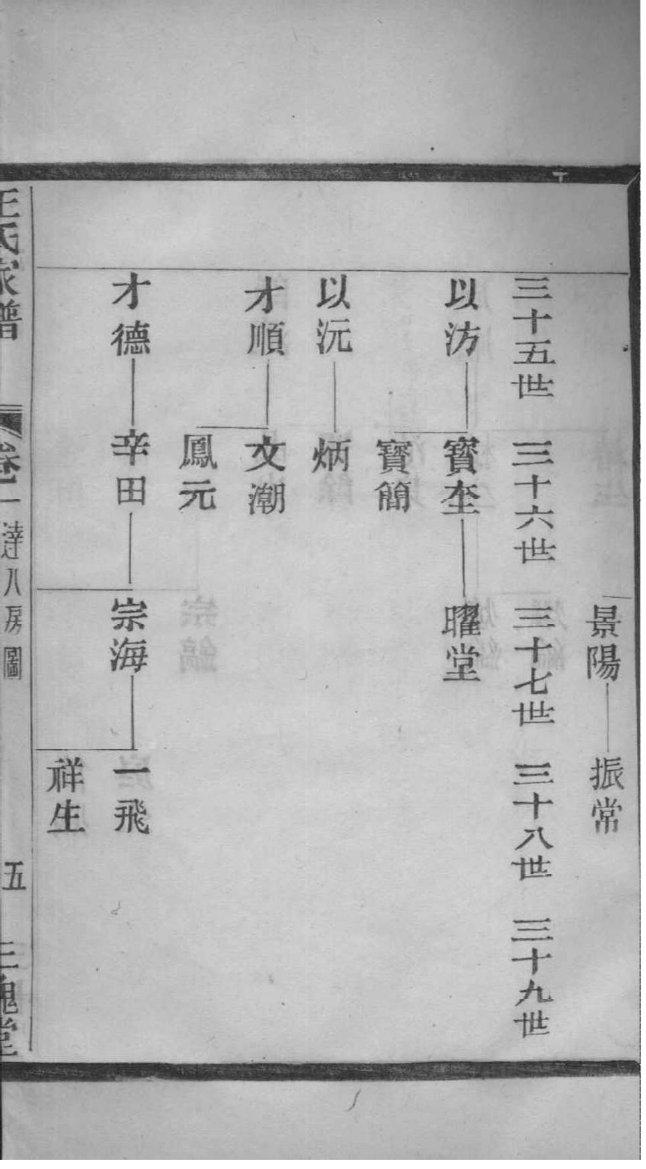 景陽 振常
三十五世 三十六世 三十七世 三十八世 三十九世
以汸 寶坴 曜堂
寶簡
以沅 炳
才順 文潮
鳳元
才德 辛田 宗海 一飛
祥生
王氏家譜 卷一 達八房圖 五 三槐堂